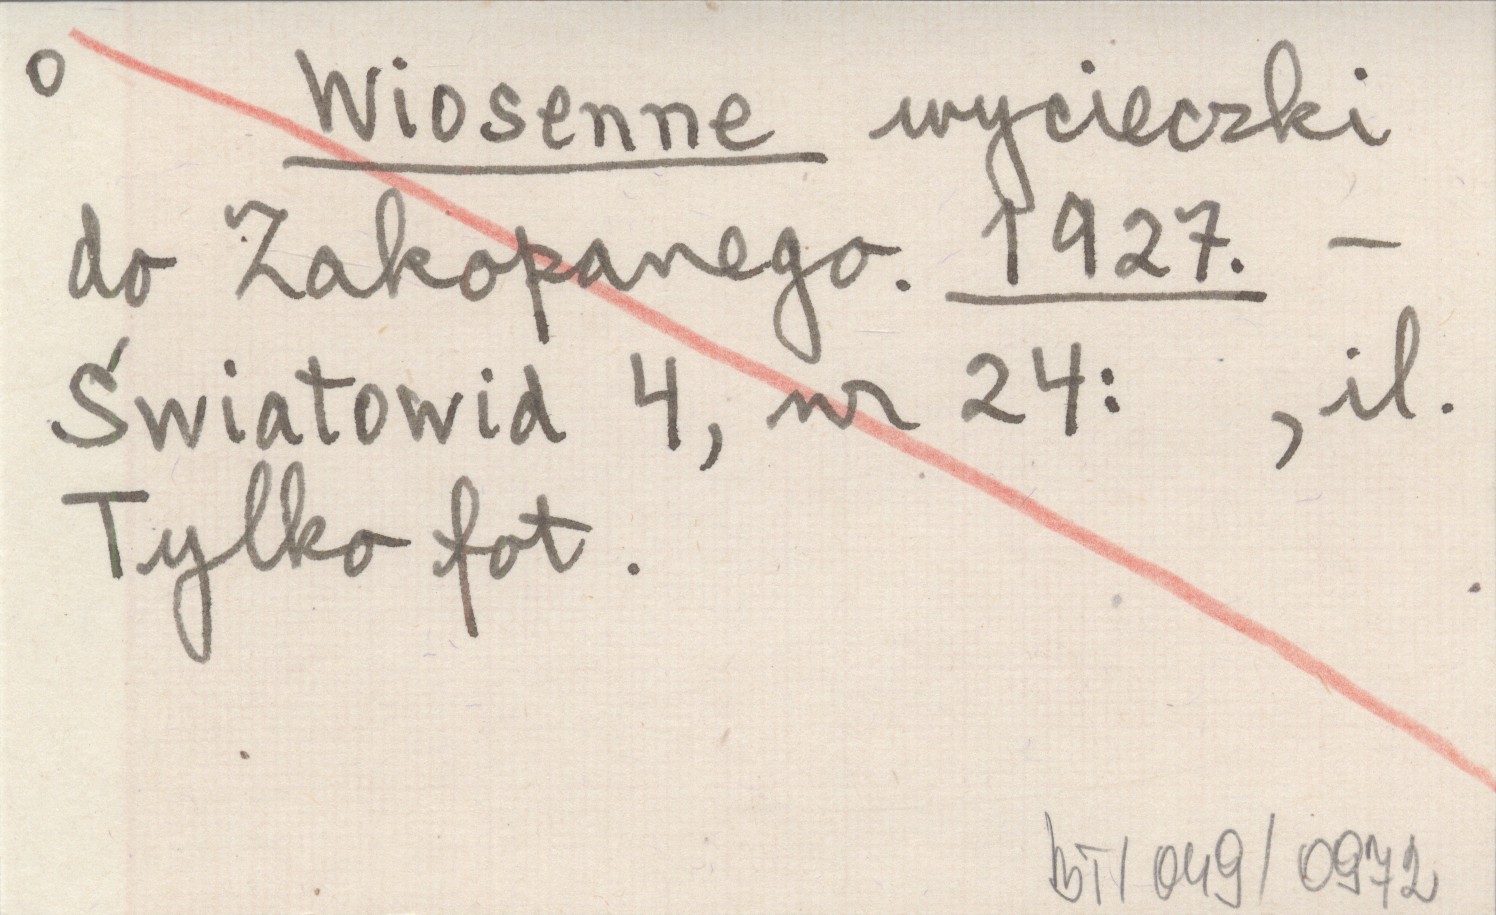 o Wiosenne wycieczki
do Zakopanego. 1927. –
Światowid 4, nr 24: , il.
Tylko fot.
BT/049/0972